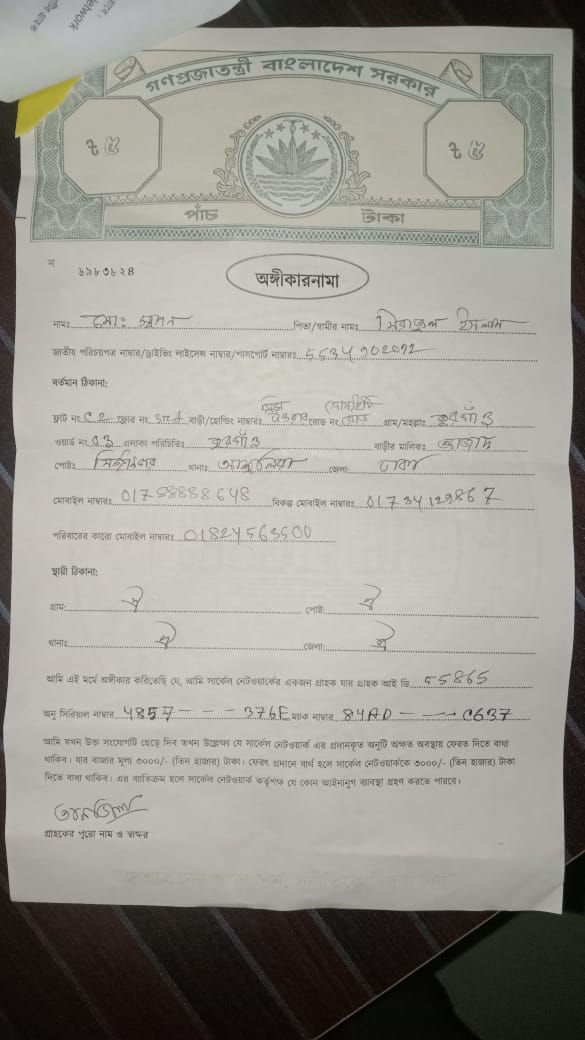 etwork
গণপ্রজাতন্ত্রী বাংলাদেশ সরকার
৳ ৫ ৳ ৫
পাঁচ টাকা
ন
৬৯৮৩৮২৪
অঙ্গীকারনামা
নামঃ মোঃ পিতা/স্বামীর নামঃ ইসলাম
জাতীয় পরিচয়পত্র নাম্বার/ড্রাইভিং লাইসেন্স নাম্বার/পাসপোর্ট নাম্বারঃ 5534902092
বর্তমান ঠিকানা:
ফ্লাট নং C2 ফ্লোর নং বাড়ী/হোল্ডিং নাম্বারঃ রোড নং গ্রাম/মহল্লাঃ কুরগাঁও
ওয়ার্ড নং 03 এলাকা পরিচিতিঃ কুরগাঁও বাড়ীর মালিকঃ আজাদ
পোষ্টঃ থানাঃ আশুলিয়া জেলা: ঢাকা
মোবাইল নাম্বারঃ 01758888648 বিকল্প মোবাইল নাম্বারঃ 01734129867
পরিবারের কারো মোবাইল নাম্বারঃ 01824563500
স্থায়ী ঠিকানা:
গ্রাম: ঐ পোষ্ট: ঐ
থানাঃ ঐ জেলা: ঐ
আমি এই মর্মে অঙ্গীকার করিতেছি যে, আমি সার্কেল নেটওয়ার্কের একজন গ্রাহক যার গ্রাহক আই ডি 55865
অনু সিরিয়াল নাম্বার 4857---376E ম্যাক নাম্বার 84AD---C637
আমি যখন উক্ত সংযোগটি ছেড়ে দিব তখন উল্লেক্ষ্য যে সার্কেল নেটওয়ার্ক এর প্রদানকৃত অনুটি অক্ষত অবস্থায় ফেরত দিতে বাধ্য
থাকিব। যার বাজার মূল্য ৩০০০/- (তিন হাজার) টাকা। ফেরৎ প্রদানে ব্যর্থ হলে সার্কেল নেটওয়ার্ককে ৩০০০/- (তিন হাজার) টাকা
দিতে বাধ্য থাকিব। এর ব্যতিক্রম হলে সার্কেল নেটওয়ার্ক কর্তৃপক্ষ যে কোন আইনানুগ ব্যবস্থা গ্রহণ করতে পারবে।
গ্রাহকের পুরো নাম ও স্বাক্ষর